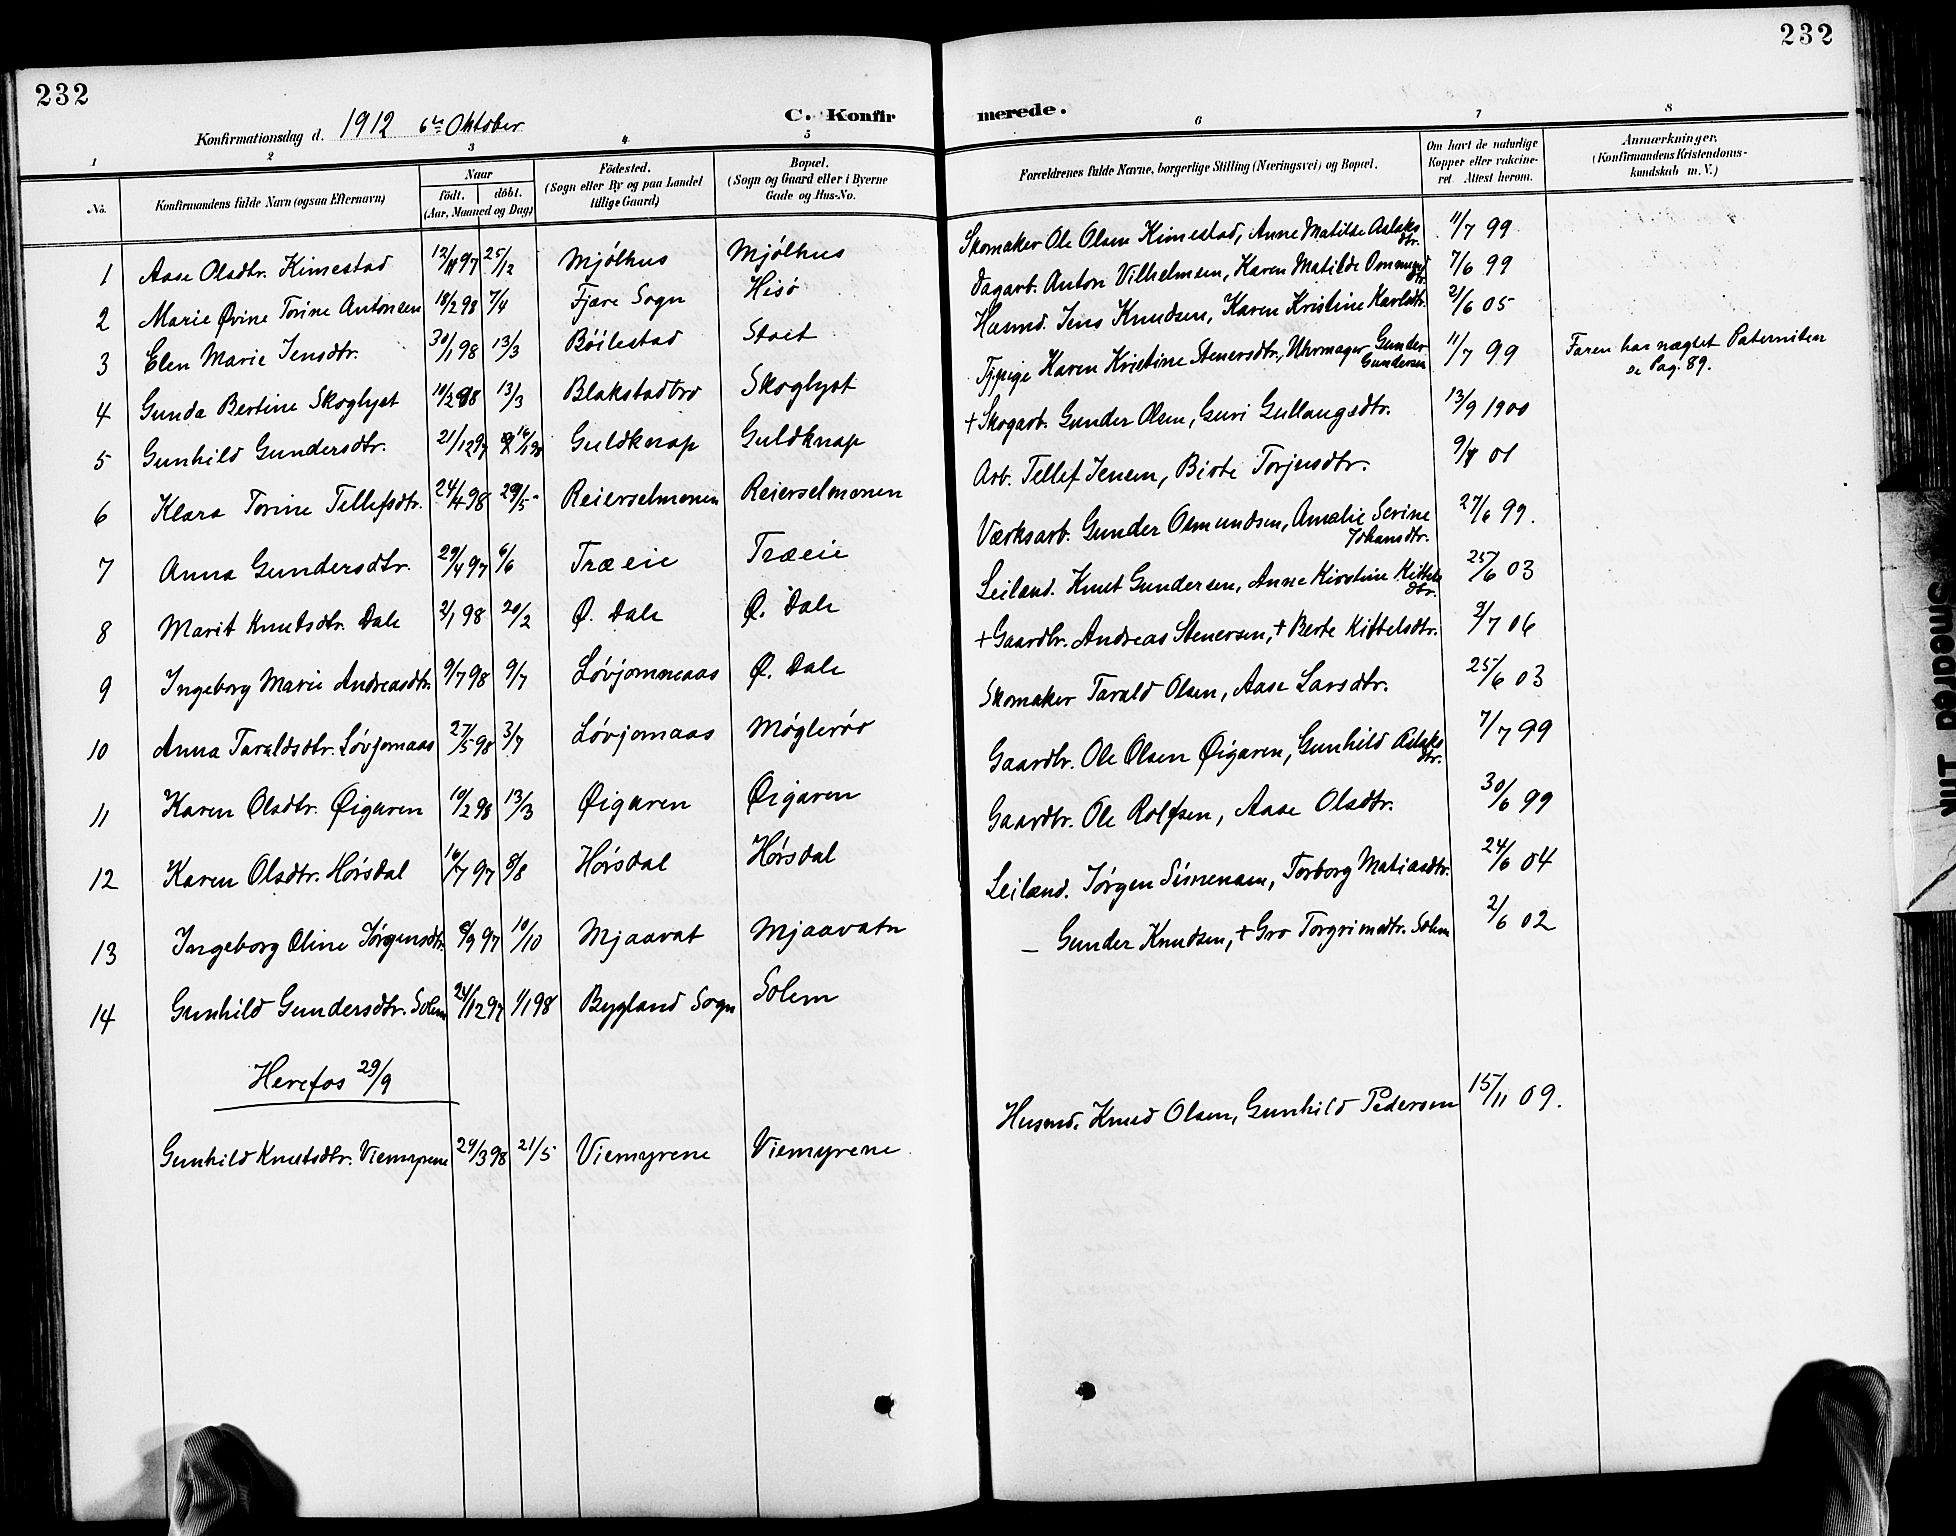 232
232
Konfirmationsdag d. 1912 6te Oktober
C. Konfirmerede.
1 2 3 4 5 6 7 8
No.
Konfirmandens fulde Navn (ogsaa Efternavn)
Naar
födt. döbt.
(Aar, Maaned og Dag)
Födested.
(Sogn eller By og paa Landet tillige Gaard)
Bopæl.
(Sogn og Gaard eller i Byerne Gade og Hus-No.
Forældrenes fulde Navne, borgerlige Stilling (Næringsvei) og Bopæl.
Om havt de naturlige Kopper eller vakcineret. Attest herom.
Anmærkninger,
(Konfirmandens Kristendomskundskab m. V.)
1 Aase Olsdtr. Kimestad 12/11 97 25/12 Mjölhus Mjölhus Skomaker Ole Olsen Kimestad, Anne Matilde Aslaksdtr. 11/7 99
2 Marie Øvine Torine Antonsen 18/2 98 7/4 Fjære Sogn Hisö Dagarb. Anton Vilhelmsen, Karen Matilde Ommundsdtr. 7/6 99
3 Elen Marie Jensdtr. 30/1 98 13/3 Böilestad Stoit Husmd. Jens Knudsen, Karen Kristine Karlsdtr. 21/6 05
4 Gunda Bertine Skoglyst 10/2 98 13/3 Blakstadbro Skoglyst Tj.pige Karen Kristine Stenersdtr., Uhrmager Gunder Gundersen 11/7 99 Faren har nægtet Paterniten se Pag. 89.
5 Gunhild Gundersdtr. 21/12 97 Guldknap Guldknap + Skogarb. Gunder Olsen, Guri Gullaugsdtr. 13/9 1900
6 Klara Torine Tellefsdtr. 24/4 98 29/5 Reierselmonen Reierselmonen Arb. Tellef Jensen, Birte Torjusdtr. 9/7 01
7 Anna Gundersdtr. 29/4 97 6/6 Træeie Træeie Værksarb. Gunder Osmundsen, Amalie Serine Johansdtr. 27/6 99.
8 Marit Knutsdtr. Dale 2/1 98 20/2 Ø. Dale Ø. Dale Leiland. Knut Gundersen, Anne Kirstine Kittelsdtr. 25/6 03
9 Ingeborg Marie Andreasdtr. 9/7 98 9/7 Løvjomneaas Ø. Dale + Gaardbr. Andreas Stenersen, + Berte Kittelsdtr. 2/7 06
10 Anna Taraldsdtr. Løvjomaas 27/5 98 3/7 Løvjomaas Møglerør Skomaker Tarald Olsen, Aase Larsdtr. 25/6 03
11 Karen Olsdtr. Øigaren 10/2 98 13/3 Øigaren Øigaren Gaardbr. Ole Olsen Øigaren, Gunhild Aslaksdtr. 7/7 99
12 Karen Olsdtr. Hørsdal 16/7 97 8/8 Hørsdal Hørsdal Gaardbr. Ole Rolfsen, Aase Olsdtr. 30/6 99
13 Ingeborg Oline Jørgensdtr. 8/9 97 10/10 Mjaavat Mjaavatn Leiland. Jørgen Simensen, Torborg Matiasdtr. 24/6 04
14 Gunhild Gundersdtr. Solem 24/12 97 1/1 98 Bygland Sogn Solem — Gunder Knudsen, + Gro Torgrimsdtr. Solem 2/6 02
Herefos 29/9
Gunhild Knutsdtr. Viemyrene 29/3 98 21/5 Viemyrene Viemyrene Husmd. Knud Olsen, Gunhild Pedersen 15/11 09.